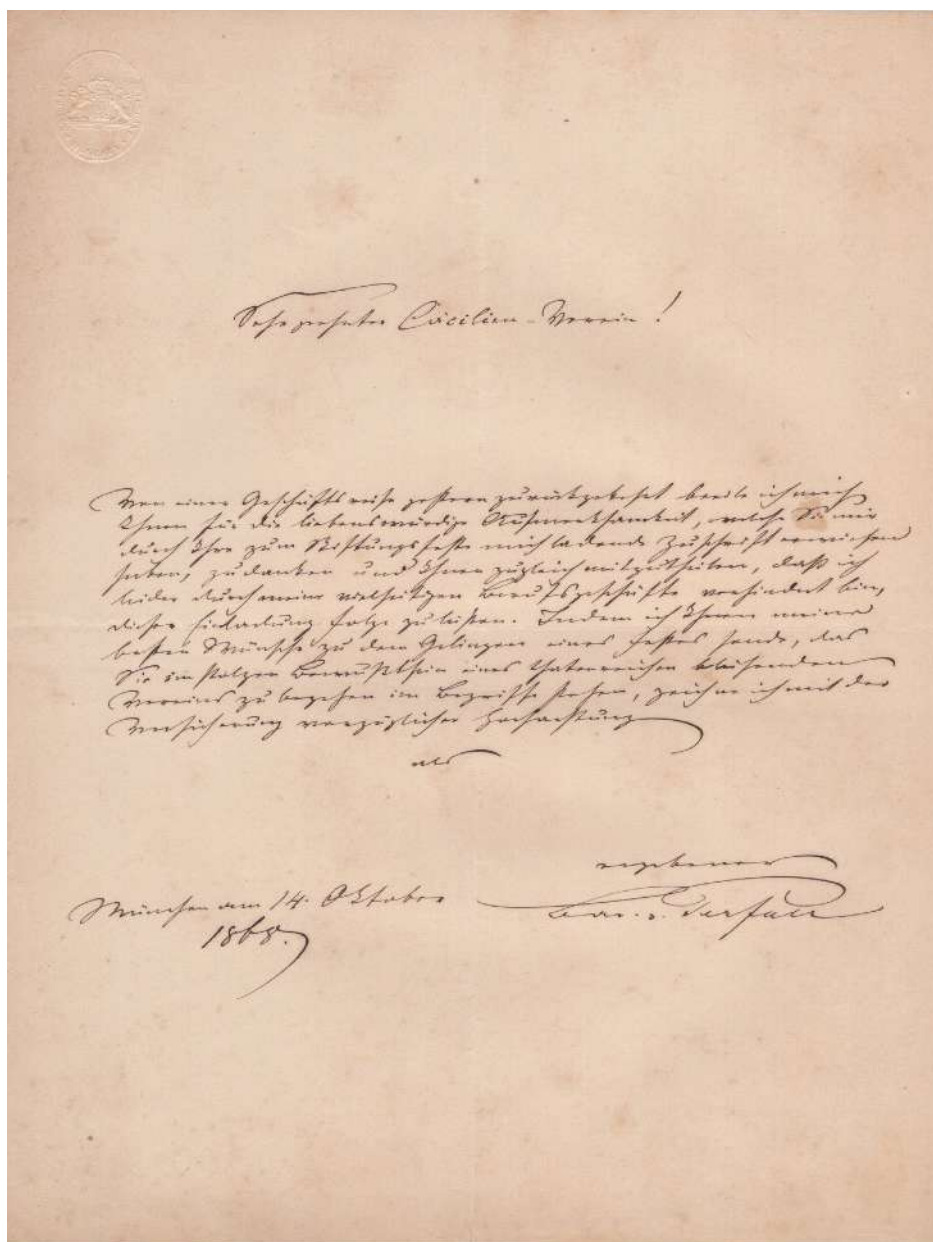 Sehr geehrter Cäcilien-Verein!
Von einer Geschäftsreise gestern zurückgekehrt beeile ich mich
Ihnen für die liebenswürdige Aufmerksamkeit, welche Sie mir
durch Ihre zum Stiftungsfeste mich ladende Zuschrift erwiesen
haben, zu danken und Ihnen zugleich mitzutheilen, daß ich
leider durch meine vielseitigen Berufsgeschäfte verhindert bin,
dieser Einladung Folge zu leisten. Indem ich Ihnen meine
besten Wünsche zu dem Gelingen eines Festes sende, das
Sie im stolzen Bewußtsein eines thatenreichen blühenden
Vereins zu begehen im Begriffe stehen, zeichne ich mit der
Versicherung vorzüglicher Hochachtung
als
ergebener
Bar. v. Perfall
München am 14. Oktober
1868.